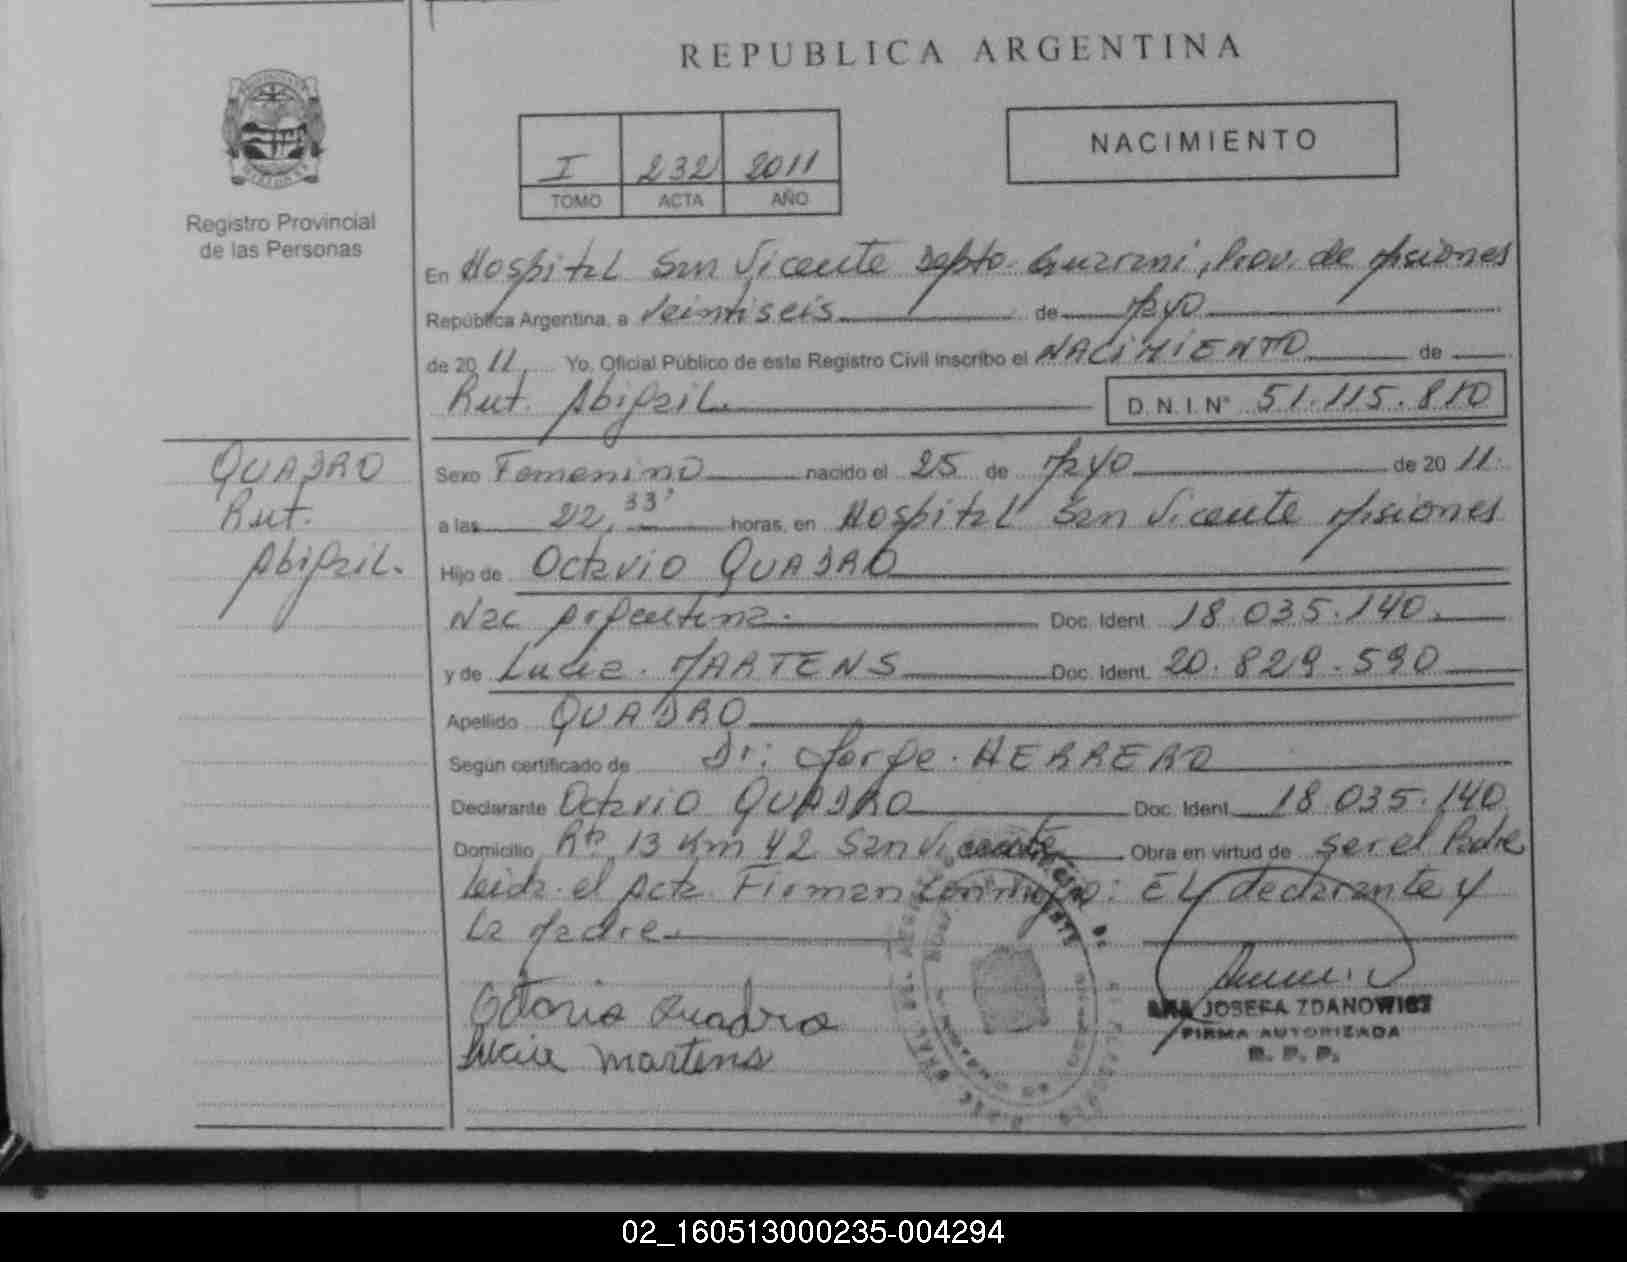 REPUBLICA ARGENTINA
I 232 2011
TOMO ACTA AÑO
NACIMIENTO
Registro Provincial
de las Personas
En Hospital San Vicente Depto. Guarani, Prov. de Misiones
República Argentina, a Veintiseis de Mayo
de 2011, Yo, Oficial Público de este Registro Civil inscribo el NACIMIENTO de
Rut Abigail D.N.I. N° 51.115.810
QUADRO
Rut.
Abigail.
Sexo Femenino nacido el 25 de Mayo de 2011.
a las 22,33' horas, en Hospital San Vicente Misiones
Hijo de Octavio QUADRO
Nac Argentina. Doc. Ident. 18.035.140.
y de Lucia. MARTENS Doc. Ident. 20.829.590
Apellido QUADRO
Según certificado de Dr: Jorge. HERRERO
Declarante Octavio QUADRO Doc. Ident. 18.035.140
Domicilio Rta 13 Km 42 San Vicente Obra en virtud de ser el Padre
Leida el Acta Firman conmigo: El declarante y
La Madre.
Octavio Quadro
Lucia Martens
JOSEFA ZDANOWICZ
FIRMA AUTORIZADA
R. P. P.
02_160513000235-004294